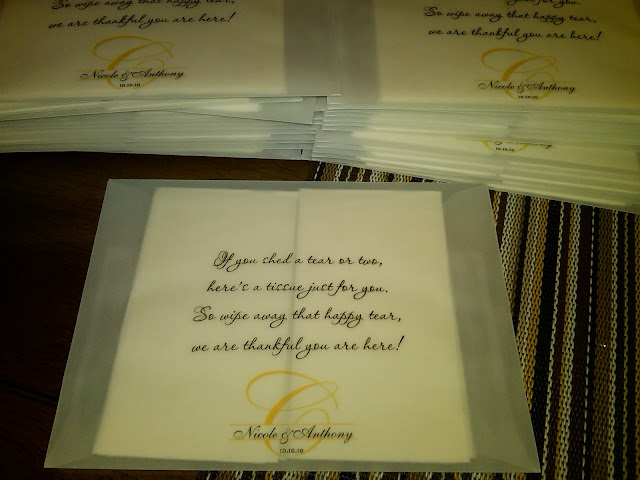 So wipe away that happy tear,
we are thankful you are here!
C
Nicole & Anthony
10.10.10
for you.
So wipe away that happy tear,
we are thankful you are here!
C
Nicole & Anthony
10.10.10
10.10.10
If you shed a tear or two,
here's a tissue just for you.
So wipe away that happy tear,
we are thankful you are here!
C
Nicole & Anthony
10.10.10